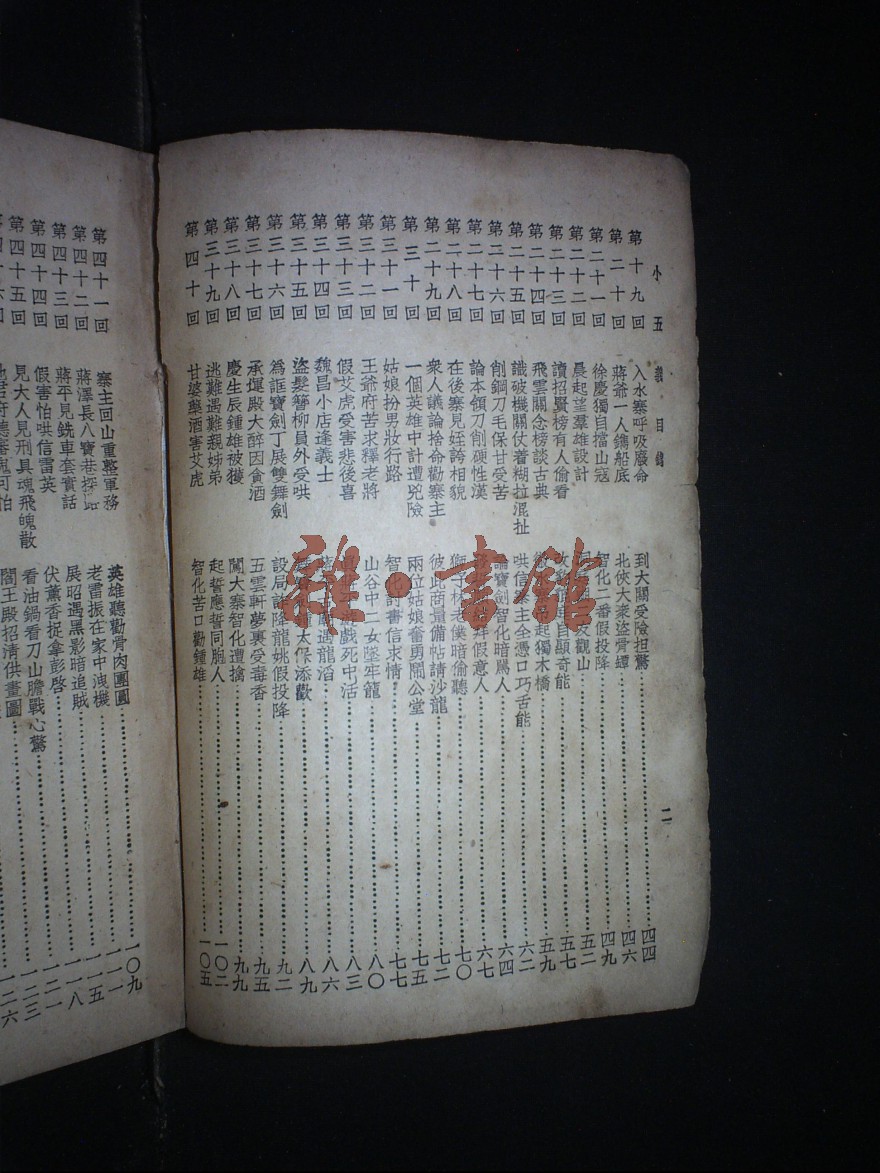 小五義目錄
二
第十九回 入水寨呼吸廢命 到大關受險担驚 四四
第二十回 蔣爺一人鐫船底 北俠大衆盜骨罈 四六
第二十一回 徐慶獨自擋山寇 智化二番假投降 四九
第二十二回 晨起望羣雄設計 觀山 五二
第二十三回 讀招賢榜有人偷看 自顯奇能 五七
第二十四回 飛雲關念榜談古典 起獨木橋 五九
第二十五回 識破機關仗着糊拉混扯 哄信寨主全憑口巧舌能 六二
第二十六回 削鋼刀毛保甘受苦 論寶劍智化暗罵人 六四
第二十七回 論本領刀削硬性漢 假意人 六七
第二十八回 在後寨見姪誇相貌 獅子林老僕暗偷聽 七〇
第二十九回 衆人議論捨命勸寨主 彼此商量備帖請沙龍 七二
第三十回 一個英雄中計遭兇險 兩位姑娘奮勇鬧公堂 七五
第三十一回 姑娘扮男妝行路 智化討書信求情 七七
第三十二回 王爺府苦求釋老將 山谷中二女墜牢籠 八〇
第三十三回 假艾虎受害悲後喜 戲死中活 八三
第三十四回 魏昌小店逢義士 遇龍滔 八六
第三十五回 盜髮簪柳員外受哄 太保添歡 八九
第三十六回 爲誆寶劍丁展雙舞劍 設局詐降龍姚假投降 九二
第三十七回 承運殿大醉因貪酒 五雲軒夢裏受毒香 九五
第三十八回 慶生辰鍾雄被獲 闖大寨智化遭擒 九九
第三十九回 逃難遇難親姊弟 起誓應誓同胞人 一〇二
第四十回 甘婆藥酒害艾虎 智化苦口勸鍾雄 一〇五
第四十一回 寨主回山重整軍務 英雄聽勸骨肉團圓 一〇九
第四十二回 蔣澤長八寶巷探路 老雷振在家中洩機
第四十三回 蔣平見銑車套實話 展昭遇黑影暗追賊
第四十四回 假害怕哄信雷英 伏薰香捉拿彭啓
見大人見刑具魂飛魄散 看油鍋看刀山膽戰心驚
閻王殿招清供畫圖